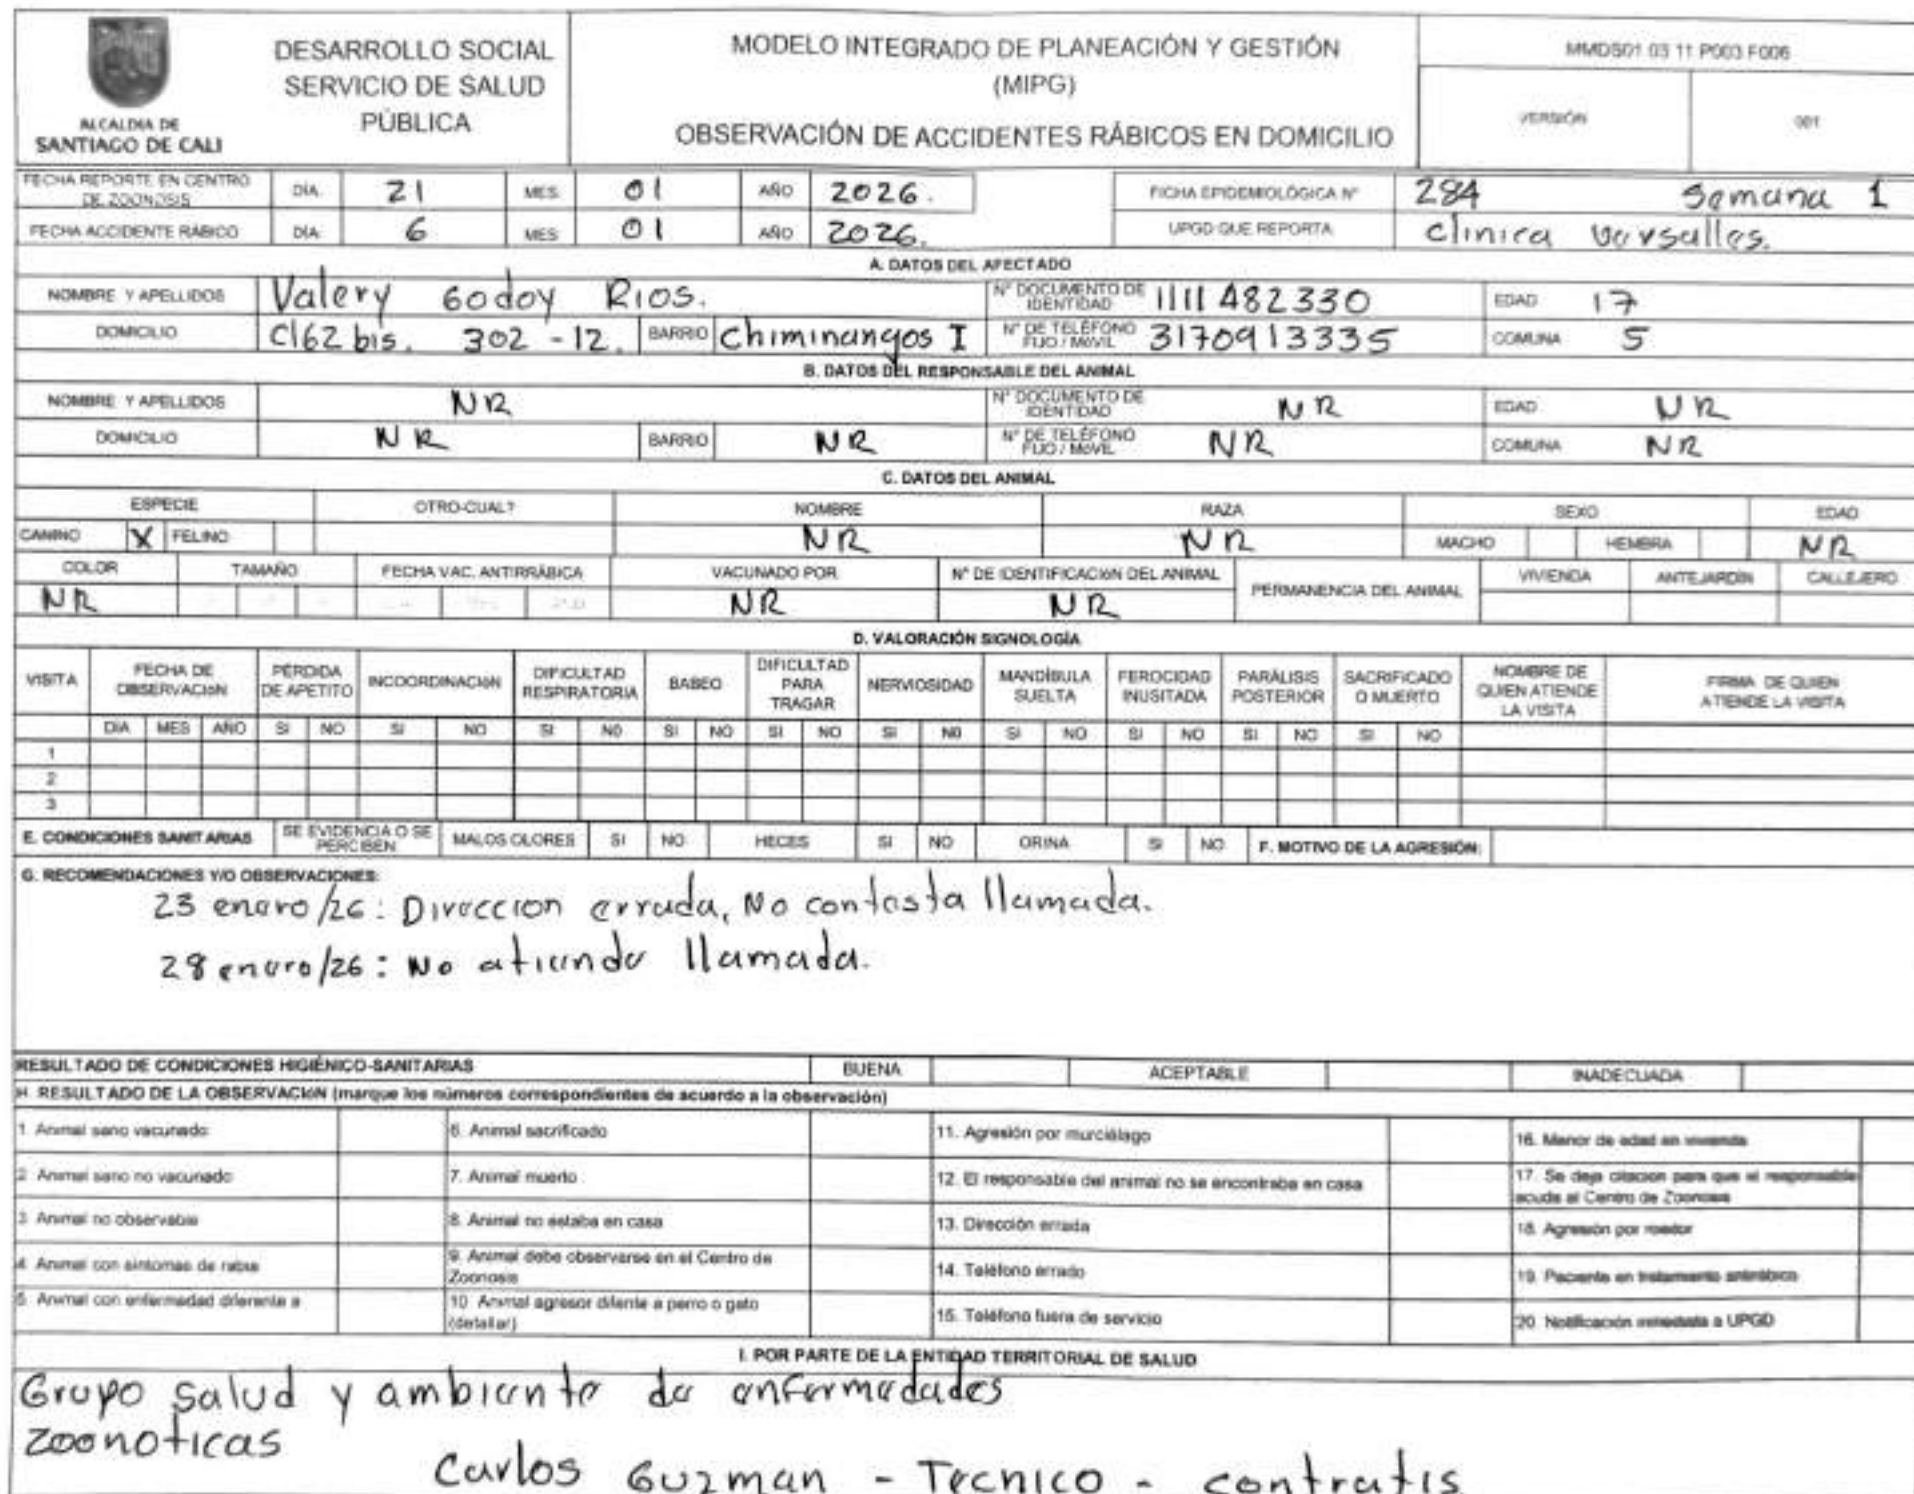 ALCALDIA DE
SANTIAGO DE CALI
DESARROLLO SOCIAL
SERVICIO DE SALUD
PÚBLICA
MODELO INTEGRADO DE PLANEACIÓN Y GESTIÓN
(MIPG)
OBSERVACIÓN DE ACCIDENTES RÁBICOS EN DOMICILIO
MMDS01 03 11 P003 F006
VERSIÓN 001
FECHA REPORTE EN CENTRO DE ZOONOSIS DÍA 21 MES 01 AÑO 2026. FICHA EPIDEMIOLÓGICA N° 284 Semana 1
FECHA ACCIDENTE RÁBICO DÍA 6 MES 01 AÑO 2026. UPGD QUE REPORTA clinica versalles.
A. DATOS DEL AFECTADO
NOMBRE Y APELLIDOS Valery Godoy Rios. N° DOCUMENTO DE IDENTIDAD 1111482330 EDAD 17
DOMICILIO Cl62 bis. 302 - 12. BARRIO Chiminangos I N° DE TELÉFONO FIJO / MÓVIL 3170913335 COMUNA 5
B. DATOS DEL RESPONSABLE DEL ANIMAL
NOMBRE Y APELLIDOS NR N° DOCUMENTO DE IDENTIDAD NR EDAD NR
DOMICILIO NR BARRIO NR N° DE TELÉFONO FIJO / MÓVIL NR COMUNA NR
C. DATOS DEL ANIMAL
ESPECIE OTRO-CUAL? NOMBRE RAZA SEXO EDAD
CANINO X FELINO NR NR MACHO HEMBRA NR
COLOR TAMAÑO FECHA VAC. ANTIRRÁBICA VACUNADO POR N° DE IDENTIFICACIÓN DEL ANIMAL PERMANENCIA DEL ANIMAL VIVIENDA ANTEJARDÍN CALLEJERO
NR NR NR
D. VALORACIÓN SIGNOLOGÍA
VISITA FECHA DE OBSERVACIÓN PÉRDIDA DE APETITO INCOORDINACIÓN DIFICULTAD RESPIRATORIA BABEO DIFICULTAD PARA TRAGAR NERVIOSIDAD MANDÍBULA SUELTA FEROCIDAD INUSITADA PARÁLISIS POSTERIOR SACRIFICADO O MUERTO NOMBRE DE QUIEN ATIENDE LA VISITA FIRMA DE QUIEN ATIENDE LA VISITA
DÍA MES AÑO SI NO SI NO SI NO SI NO SI NO SI NO SI NO SI NO SI NO SI NO
1
2
3
E. CONDICIONES SANITARIAS SE EVIDENCIA O SE PERCIBEN MALOS OLORES SI NO HECES SI NO ORINA SI NO F. MOTIVO DE LA AGRESIÓN:
G. RECOMENDACIONES Y/O OBSERVACIONES:
23 enero/26: Direccion errada, No contesta llamada.
28 enero/26: No atiende llamada.
RESULTADO DE CONDICIONES HIGIÉNICO-SANITARIAS BUENA ACEPTABLE INADECUADA
H. RESULTADO DE LA OBSERVACIÓN (marque los números correspondientes de acuerdo a la observación)
1. Animal sano vacunado 6. Animal sacrificado 11. Agresión por murciélago 16. Menor de edad en vivienda
2. Animal sano no vacunado 7. Animal muerto 12. El responsable del animal no se encontraba en casa 17. Se deja citacion para que el responsable acuda al Centro de Zoonosis
3. Animal no observable 8. Animal no estaba en casa 13. Dirección errada 18. Agresión por roedor
4. Animal con síntomas de rabia 9. Animal debe observarse en el Centro de Zoonosis 14. Teléfono errado 19. Paciente en tratamiento antirrábico
5. Animal con enfermedad diferente a 10. Animal agresor difente a perro o gato (detallar) 15. Teléfono fuera de servicio 20. Notificación inmediata a UPGD
I. POR PARTE DE LA ENTIDAD TERRITORIAL DE SALUD
Grupo salud y ambiente de enfermedades
zoonoticas
Carlos Guzman - Tecnico - contratis